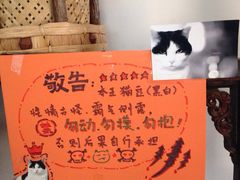 敬告:
女王猫豆(黑白)
性情古怪.霸气侧露
勿动.勿摸.勿抱!
否则后果自行承担